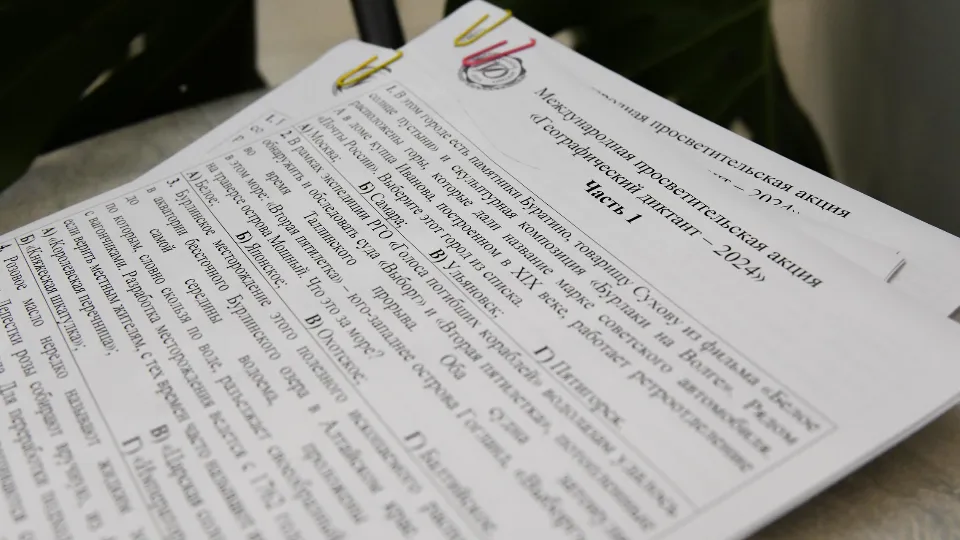 просветительская акция
– 2024»
Международная просветительская акция
«Географический диктант – 2024»
Часть 1
1. В этом городе есть памятники Буратино, товарищу Сухову из фильма «Белое
солнце пустыни» и скульптурная композиция «Бурлаки на Волге». Рядом
расположены горы, которые дали название марке советского автомобиля.
А в доме купца Иванова, построенном в XIX веке, работает ретроотделение
«Почты России». Выберите этот город из списка.
А) Москва; Б) Самара; В) Ульяновск; Г) Пятигорск.
2. В рамках экспедиции РГО «Голоса погибших кораблей» водолазам удалось
обнаружить и обследовать суда «Выборг» и «Вторая пятилетка», потопленные
во время Таллинского прорыва. Оба судна
в этом море: «Вторая пятилетка» – юго-западнее острова Гогланд, «Выборг»
на траверсе острова Мощный. Что это за море?
А) Белое; Б) Японское; В) Охотское; Г) Балтийское.
3. Бурлинское месторождение этого полезного ископаемого
в акватории бессточного Бурлинского озера в Алтайском крае.
до самой середины водоема, проложены
по которым, словно скользя по воде, разъезжает своеобразный
с вагончиками. Разработка месторождения ведется с 1762
если верить местным жителям, с тех времен часто называют
А) «Королевская перечница»; В) «Царская
Б) «Княжеская шкатулка»; Г)
4. Розовое масло нередко называют жидким
Лепестки розы собирают вручную, из
Для переработки